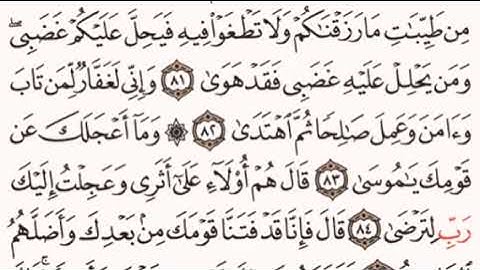 مِن طَيِّبَٰتِ مَا رَزَقْنَٰكُمْ وَلَا تَطْغَوْا۟ فِيهِ فَيَحِلَّ عَلَيْكُمْ غَضَبِى ۖ
وَمَن يَحْلِلْ عَلَيْهِ غَضَبِى فَقَدْ هَوَىٰ ٨١ وَإِنِّى لَغَفَّارٌ لِّمَن تَابَ
وَءَامَنَ وَعَمِلَ صَٰلِحًا ثُمَّ ٱهْتَدَىٰ ٨٢ ۞ وَمَآ أَعْجَلَكَ عَن
قَوْمِكَ يَٰمُوسَىٰ ٨٣ قَالَ هُمْ أُو۟لَآءِ عَلَىٰٓ أَثَرِى وَعَجِلْتُ إِلَيْكَ
رَبِّ لِتَرْضَىٰ ٨٤ قَالَ فَإِنَّا قَدْ فَتَنَّا قَوْمَكَ مِنۢ بَعْدِكَ وَأَضَلَّهُمُ